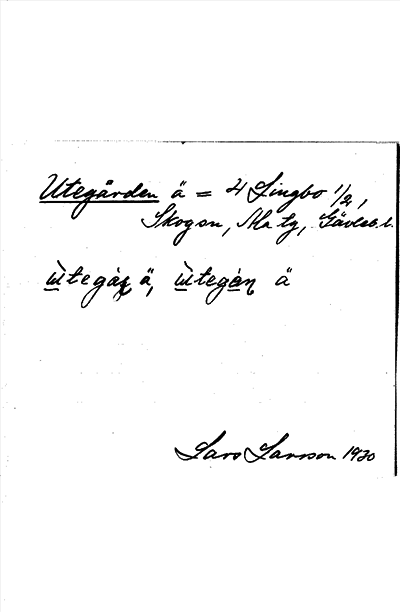 Utegården ä = 4 Lingbo 1/2,
Skogsn, Ala tg, Gävleb. l.
ùtegàṇ ä, ùtegàn ä
Lars Larsson 1930